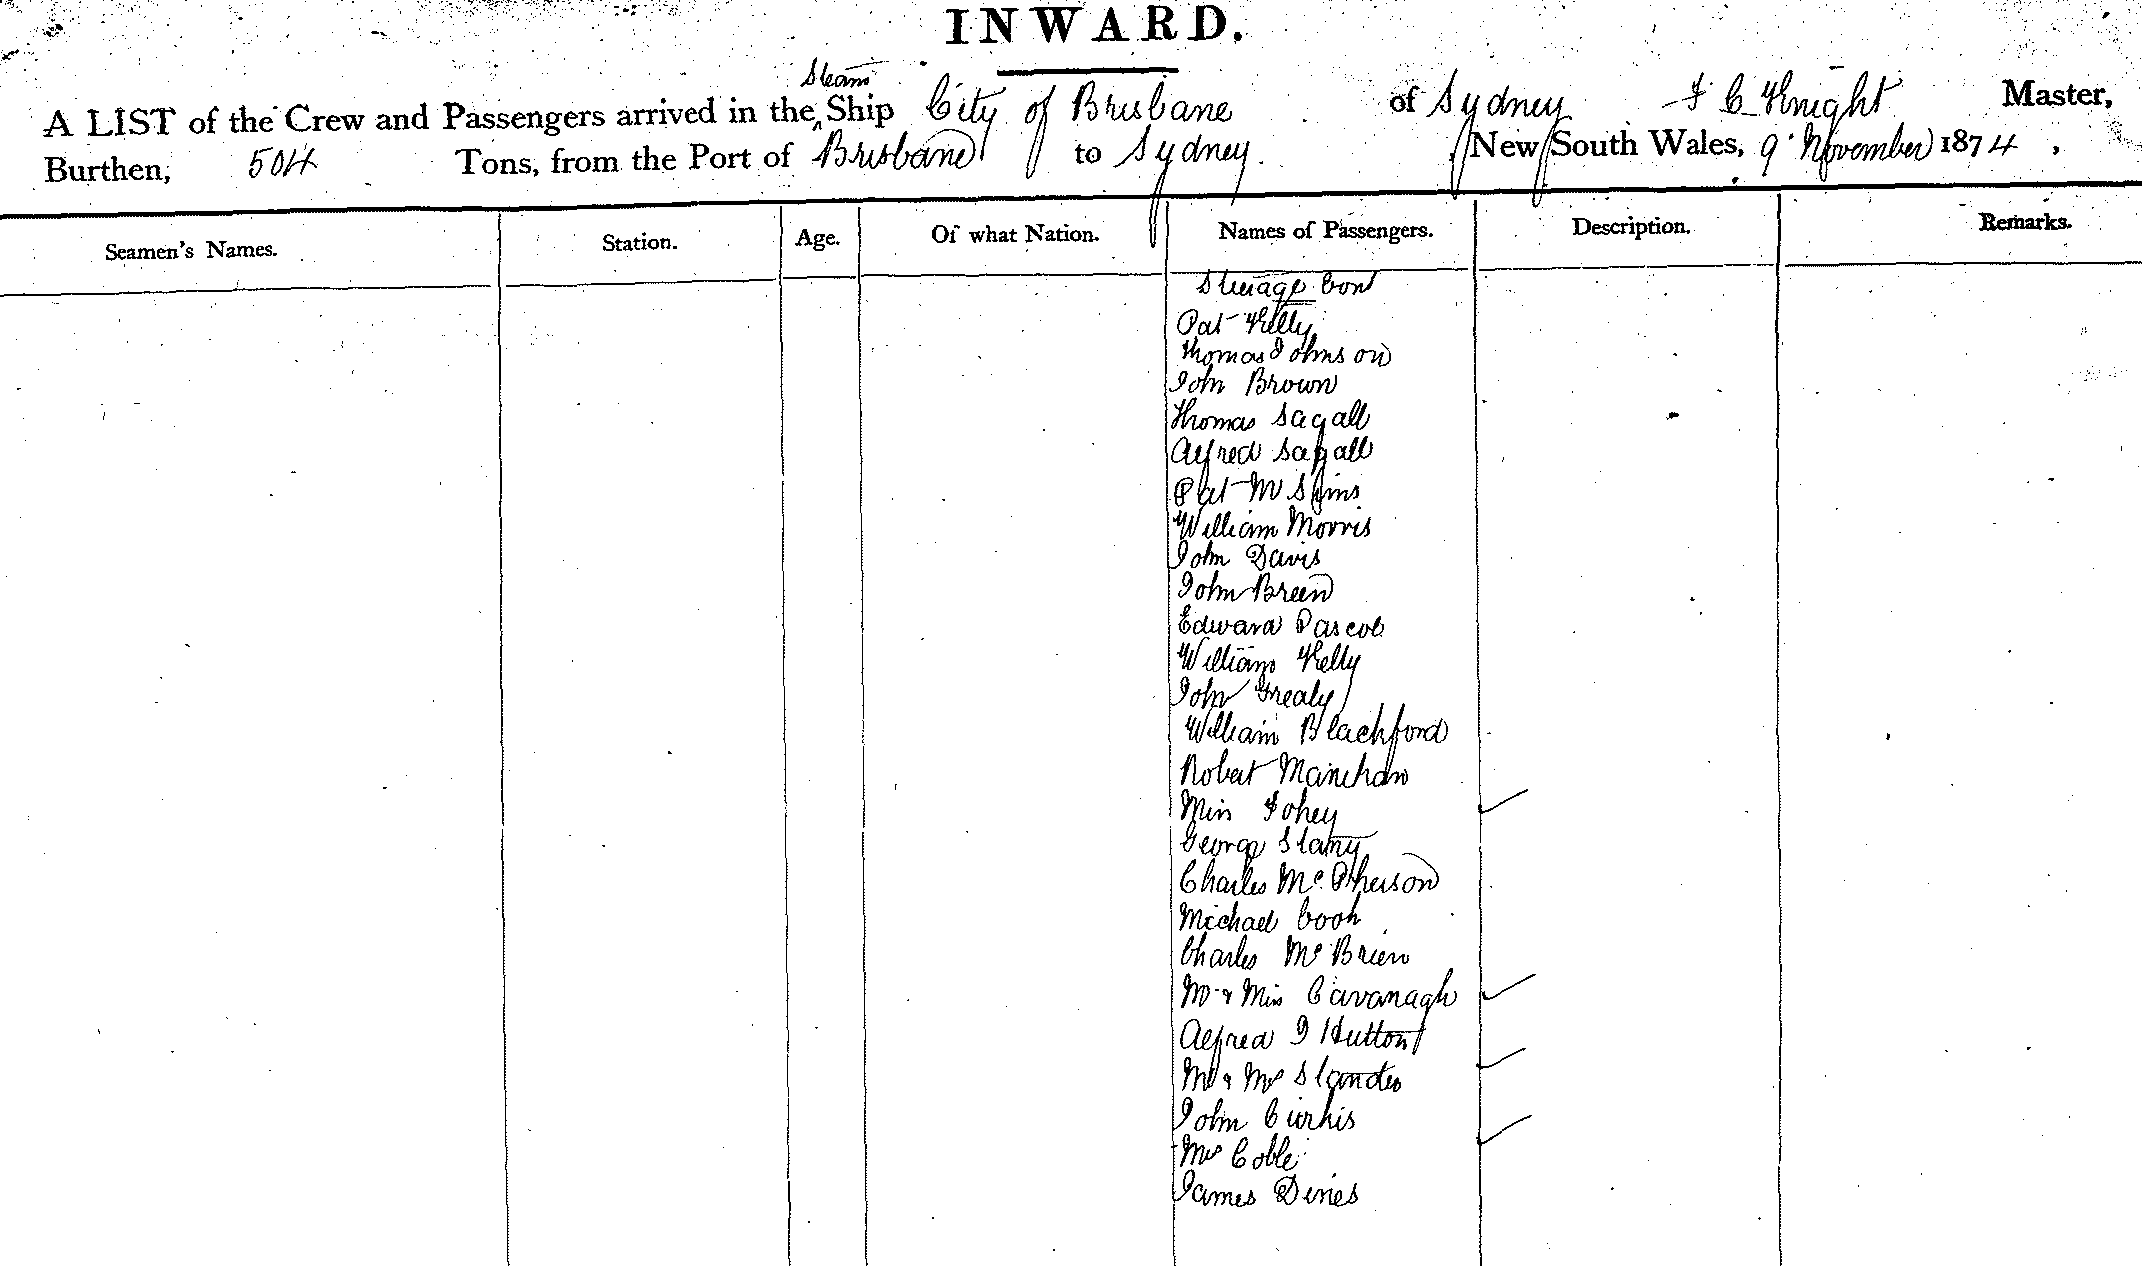 INWARD.
A LIST of the Crew and Passengers arrived in the Steam Ship City of Brisbane of Sydney F C Knight Master,
Burthen, 504 Tons, from the Port of Brisbane to Sydney. New South Wales, 9 November 1874,
Seamen's Names. Station. Age. Of what Nation. Names of Passengers. Description. Remarks.
Steerage Cont
Pat Kelly
Thomas Johnson
John Brown
Thomas Sagall
Alfred Sagall
Pat
William Morris
John Davis
John Breen
Edward Pascoe
William Kelly
John Grealy
William Blackford
Robert
Miss Fohey
George
Charles McPherson
Michael Cook
Charles McBrien
Mr & Miss Cavanagh
Alfred J Hutton
Mr & Mrs
John
Mrs Coble
James Dines